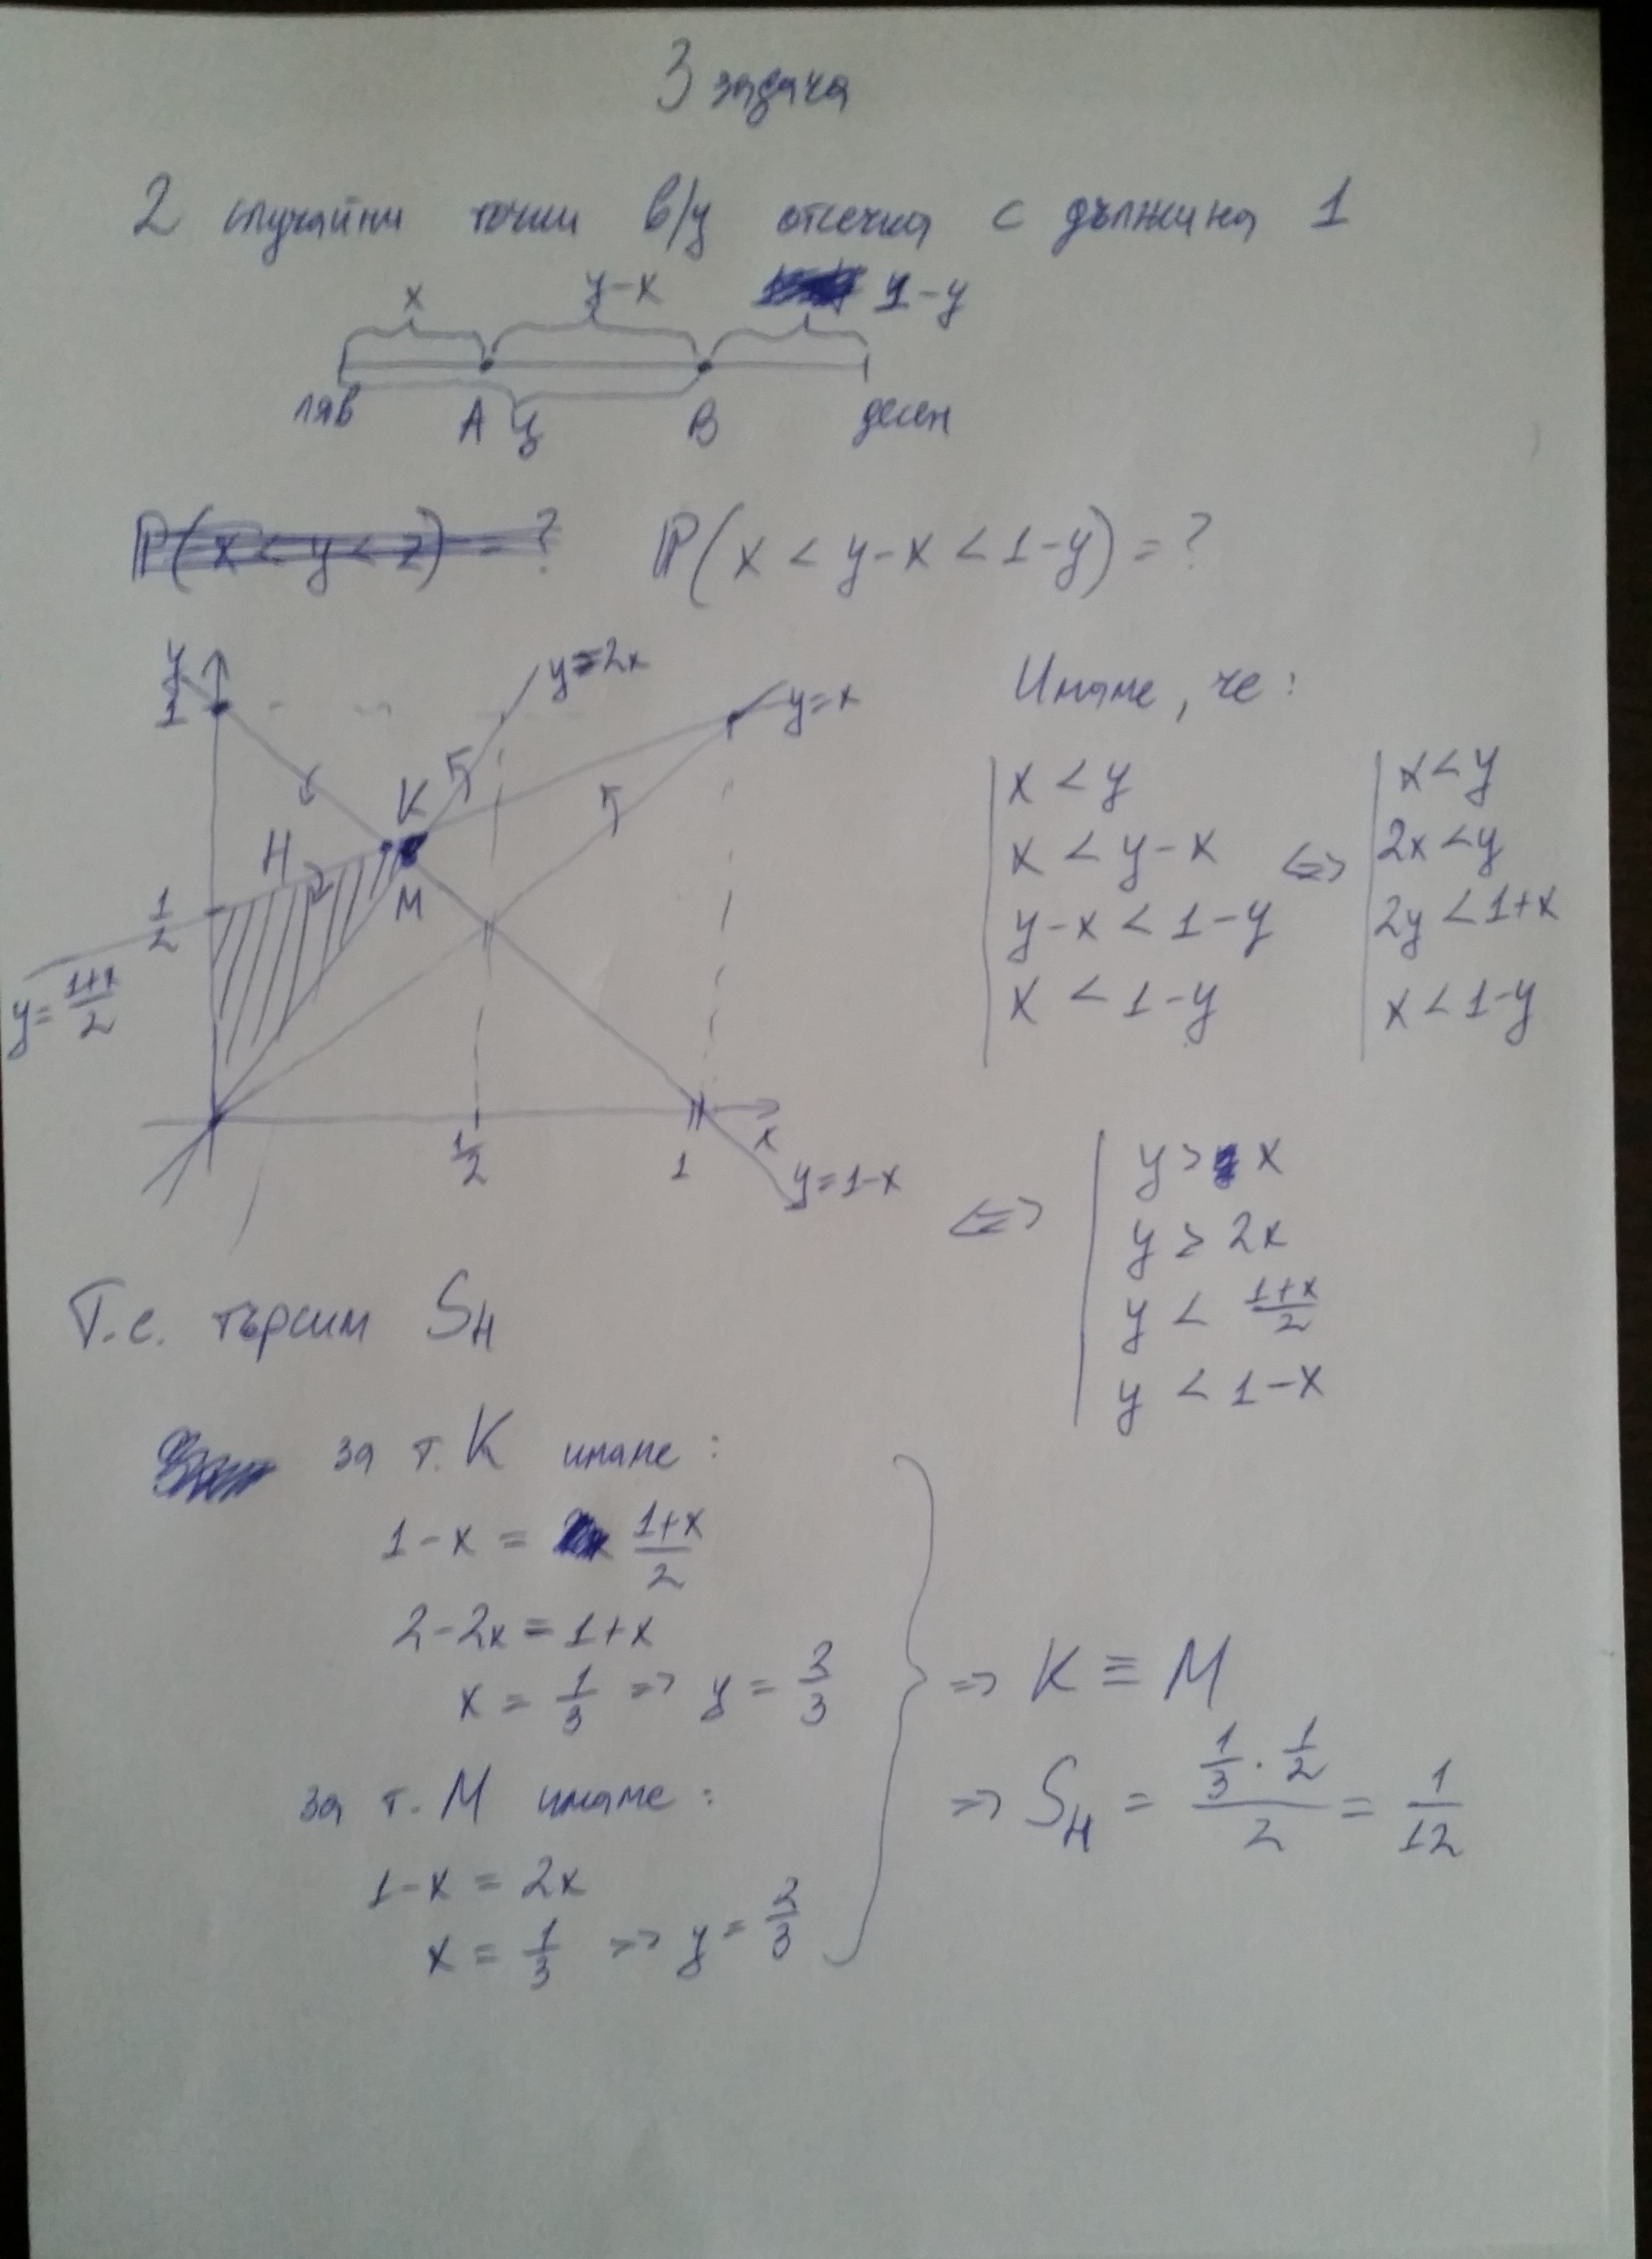 3 задача
2 случайни точки в/у отсечка с дължина 1
x y-x 1-y
ляв A y B десен
P(x < y < z) = ? P(x < y-x < 1-y) = ?
y
1
y=2x
y=x
K
H
M
1/2
y = (1+x)/2
1/2
1
x
y=1-x
Имаме, че:
x < y
x < y-x
y-x < 1-y
x < 1-y
<=>
x < y
2x < y
2y < 1+x
x < 1-y
<=>
y > x
y > 2x
y < (1+x)/2
y < 1-x
Т.е. търсим S_H
за т. K имаме:
1-x = (1+x)/2
2-2x = 1+x
x = 1/3 => y = 2/3
за т. M имаме:
1-x = 2x
x = 1/3 => y = 2/3
=> K ≡ M
=> S_H = (1/3 · 1/2)/2 = 1/12